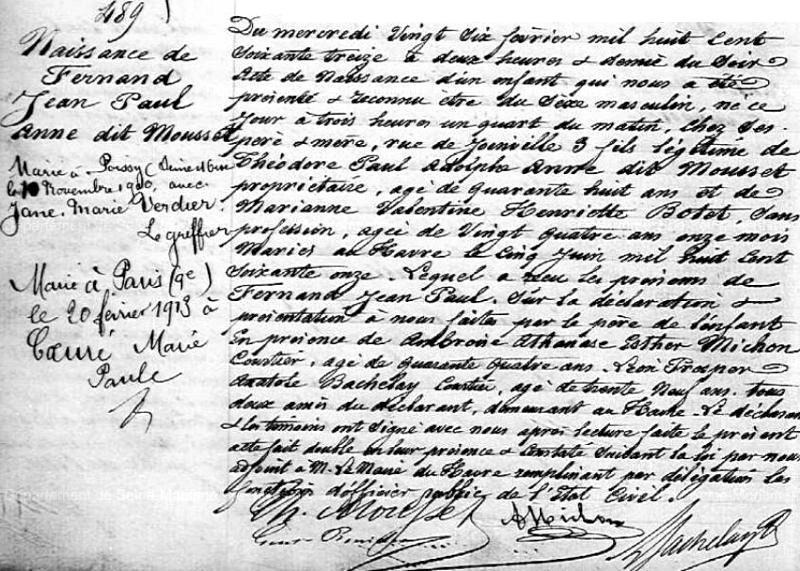 489
Naissance de
Fernand
Jean Paul
Anne dit Mousset
Marié à Poissy (Seine et Oise
le 10 Novembre 1900, avec
Jane Marie Verdier.
Le greffier
Marié à Paris (9e)
le 20 février 1913 à
Cœuré Marie
Paule
Du mercredi Vingt Six février mil huit Cent
Soixante treize à deux heures & demie du Soir
Acte de Naissance d'un enfant qui nous a été
présenté & reconnu être du Sexe masculin, né ce
Jour à trois heures un quart du matin, chez Ses
père & mère, rue de Joinville 3 fils légitime de
Théodore Paul Adolphe Anne dit Mousset
propriétaire, agé de quarante huit ans et de
Marianne Valentine Henriette Botet, Sans
profession, agée de Vingt quatre ans onze mois
Mariés au Havre le Cinq Juin mil huit Cent
Soixante onze. Lequel a reçu les prénoms de
Fernand Jean Paul. Sur la déclaration &
présentation à nous faites par le père de l'enfant
En présence de Ambroise Athanase Esther Michon
Courtier, agé de quarante quatre ans. Léon Prosper
Anatole Bachelay Courtier, agé de trente Neuf ans. tous
deux amis du déclarant, demeurant au Havre. Le déclarant
& les témoins ont Signé avec nous après lecture faite le présent
acte fait double en leur présence & Constaté Suivant la loi par nous
adjoint à M. Le Maire du Havre remplissant par délégation les
fonctions d'officier public de l'Etat Civil.
Th. Mousset
AMichon
Bachelay
Département de Seine-Maritime